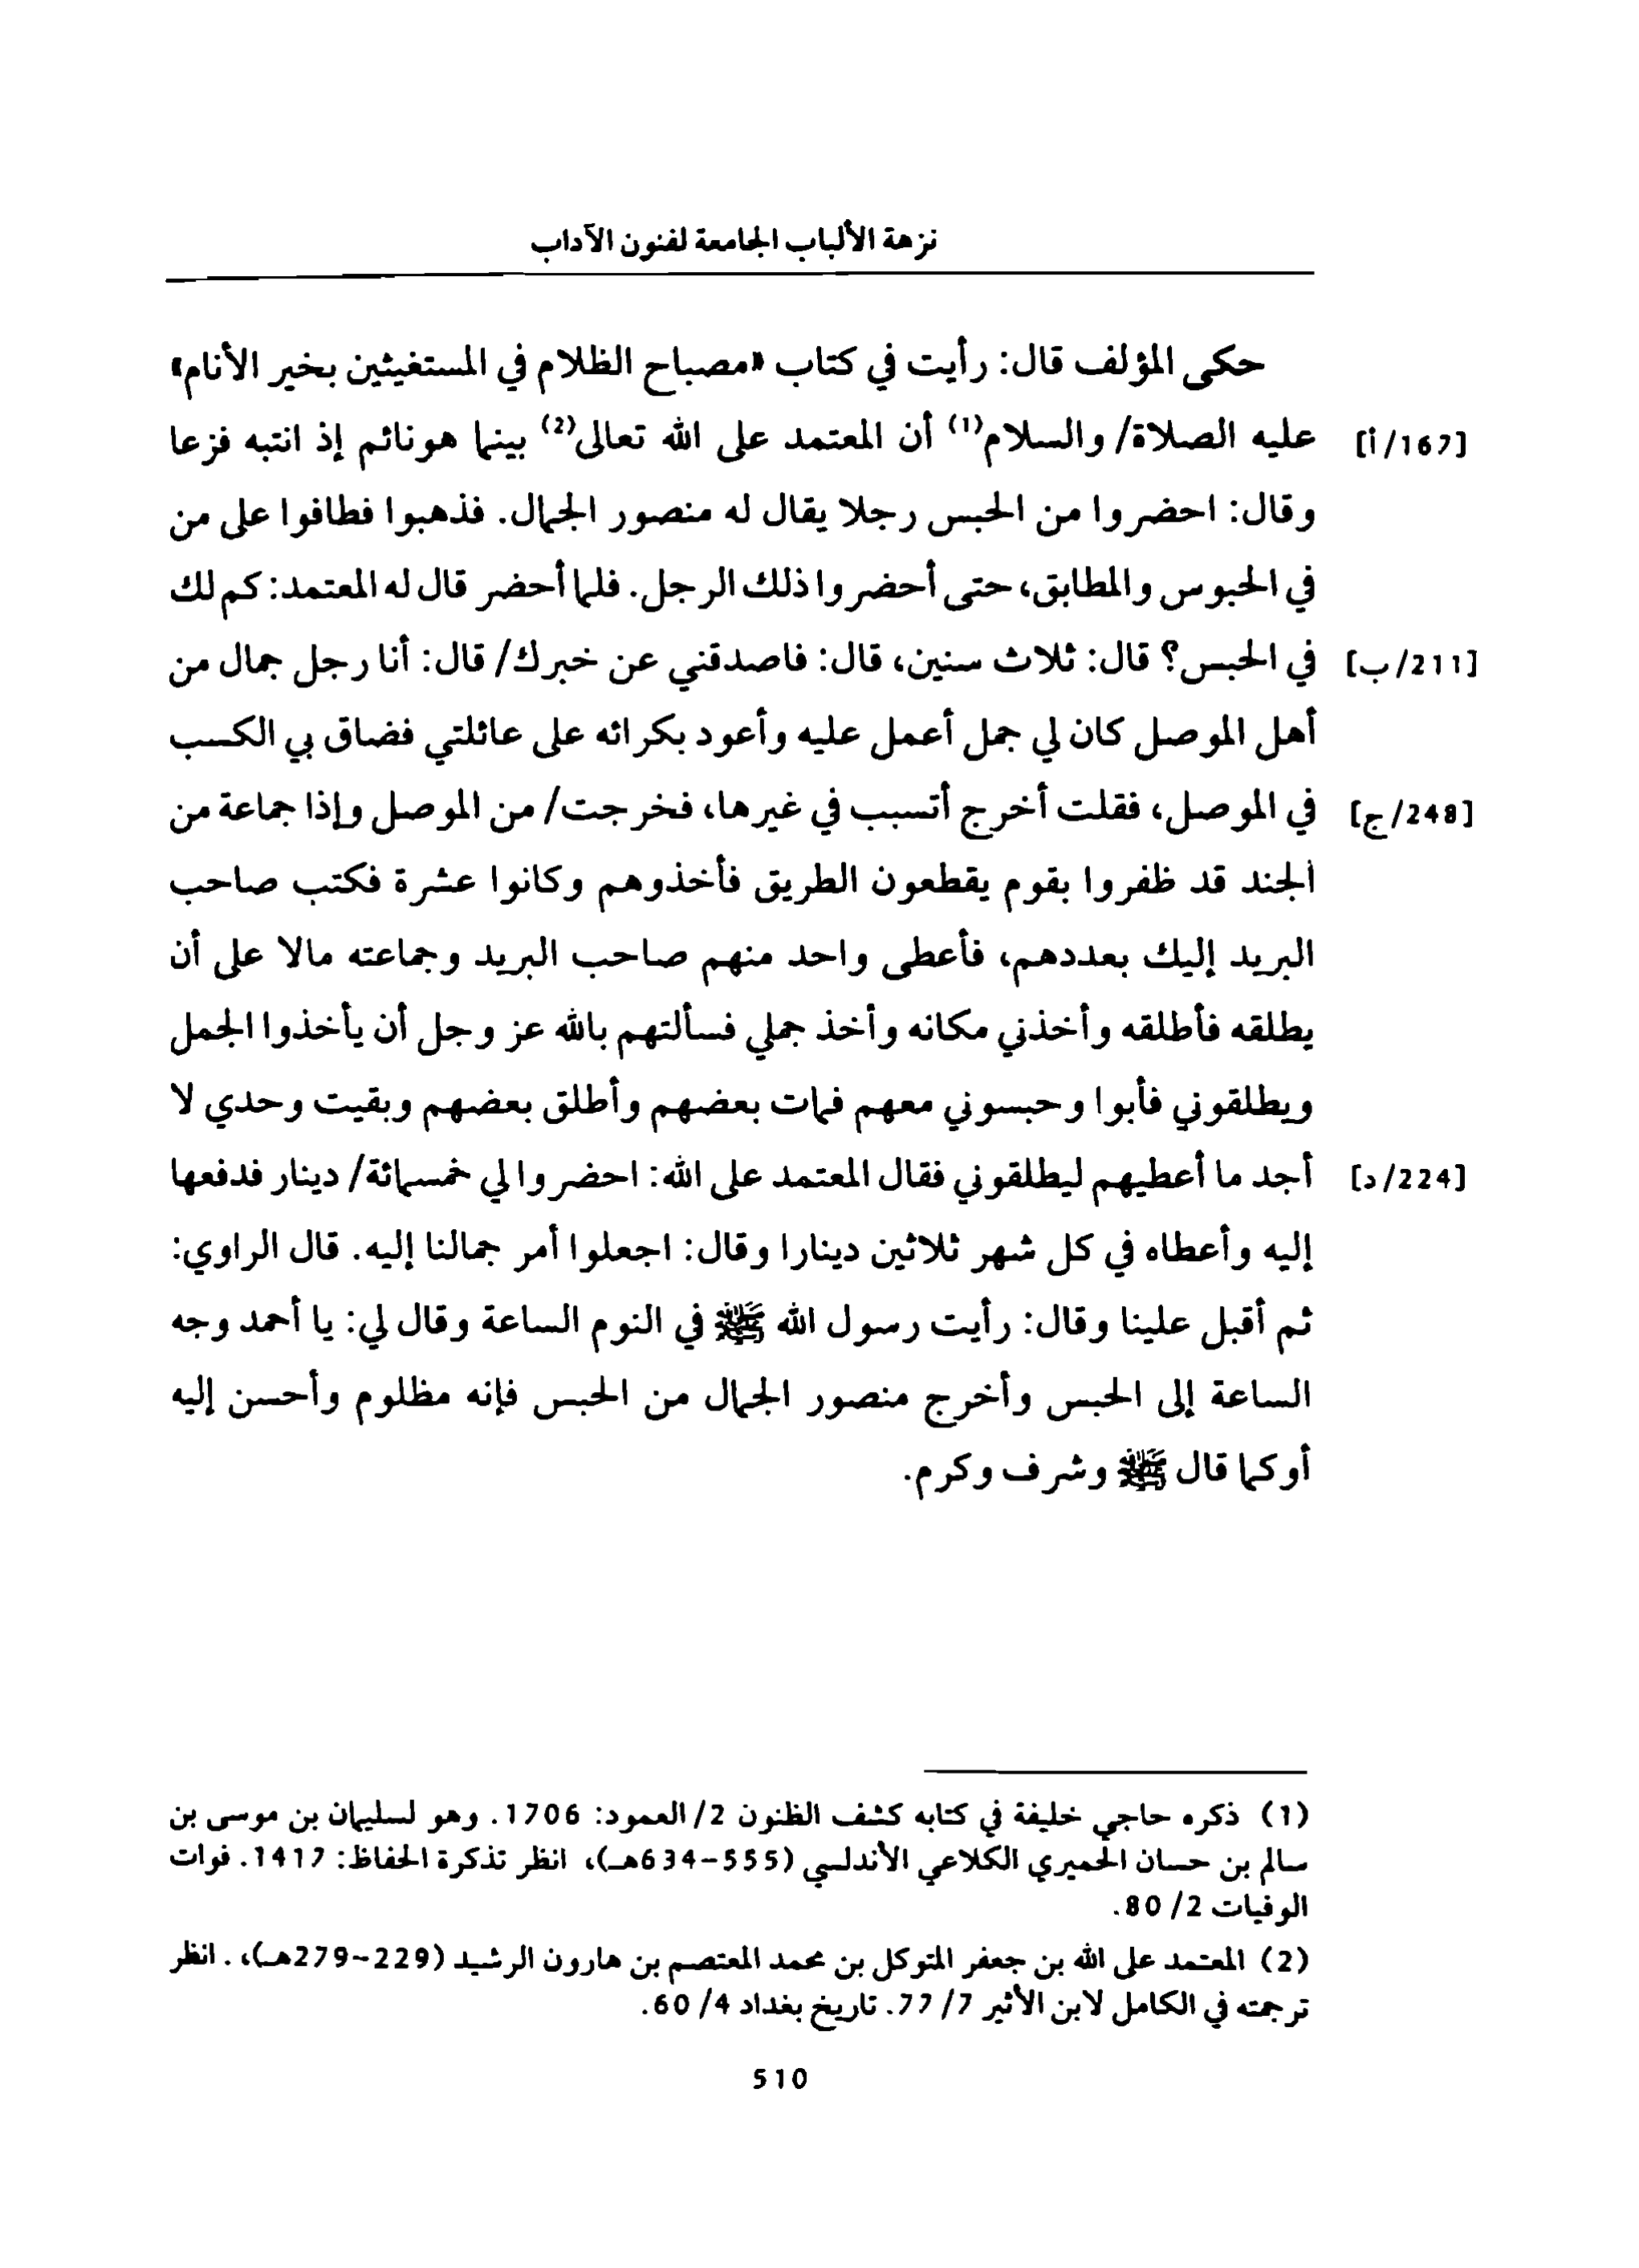 نزهة الألباب الجامعة لفنون الآداب
حكى المؤلف قال: رأيت في كتاب «مصباح الظلام في المستغيثين بخير الأنام»
[167/أ] عليه الصلاة/ والسلام(1) أن المعتمد على الله تعالى(2) بينما هو نائم إذ انتبه فزعا
وقال: احضروا من الحبس رجلا يقال له منصور الجمال. فذهبوا فطافوا على من
في الحبوس والمطابق، حتى أحضروا ذلك الرجل. فلما أحضر قال له المعتمد: كم لك
[211/ب] في الحبس؟ قال: ثلاث سنين، قال: فاصدقني عن خبرك/ قال: أنا رجل جمال من
أهل الموصل كان لي جمل أعمل عليه وأعود بكرائه على عائلتي فضاق بي الكسب
[248/ج] في الموصل، فقلت أخرج أتسبب في غيرها، فخرجت/ من الموصل وإذا جماعة من
الجند قد ظفروا بقوم يقطعون الطريق فأخذوهم وكانوا عشرة فكتب صاحب
البريد إليك بعددهم، فأعطى واحد منهم صاحب البريد وجماعته مالا على أن
يطلقه فأطلقه وأخذني مكانه وأخذ جملي فسألتهم بالله عز وجل أن يأخذوا الجمل
ويطلقوني فأبوا وحبسوني معهم فمات بعضهم وأطلق بعضهم وبقيت وحدي لا
[224/د] أجد ما أعطيهم ليطلقوني فقال المعتمد على الله: احضروا لي خمسمائة/ دينار فدفعها
إليه وأعطاه في كل شهر ثلاثين دينارا وقال: اجعلوا أمر جمالنا إليه. قال الراوي:
ثم أقبل علينا وقال: رأيت رسول الله ﷺ في النوم الساعة وقال لي: يا أحمد وجه
الساعة إلى الحبس وأخرج منصور الجمال من الحبس فإنه مظلوم وأحسن إليه
أو كما قال ﷺ وشرف وكرم.
(1) ذكره حاجي خليفة في كتابه كشف الظنون 2/ العمود: 1706. وهو لسليمان بن موسى بن
سالم بن حسان الحميري الكلاعي الأندلسي (555-634هـ)، انظر تذكرة الحفاظ: 1417. فوات
الوفيات 2/ 80.
(2) المعتمد على الله بن جعفر المتوكل بن محمد المعتصم بن هارون الرشيد (229-279هـ)،. انظر
ترجمته في الكامل لابن الأثير 7/ 77. تاريخ بغداد 4/ 60.
510